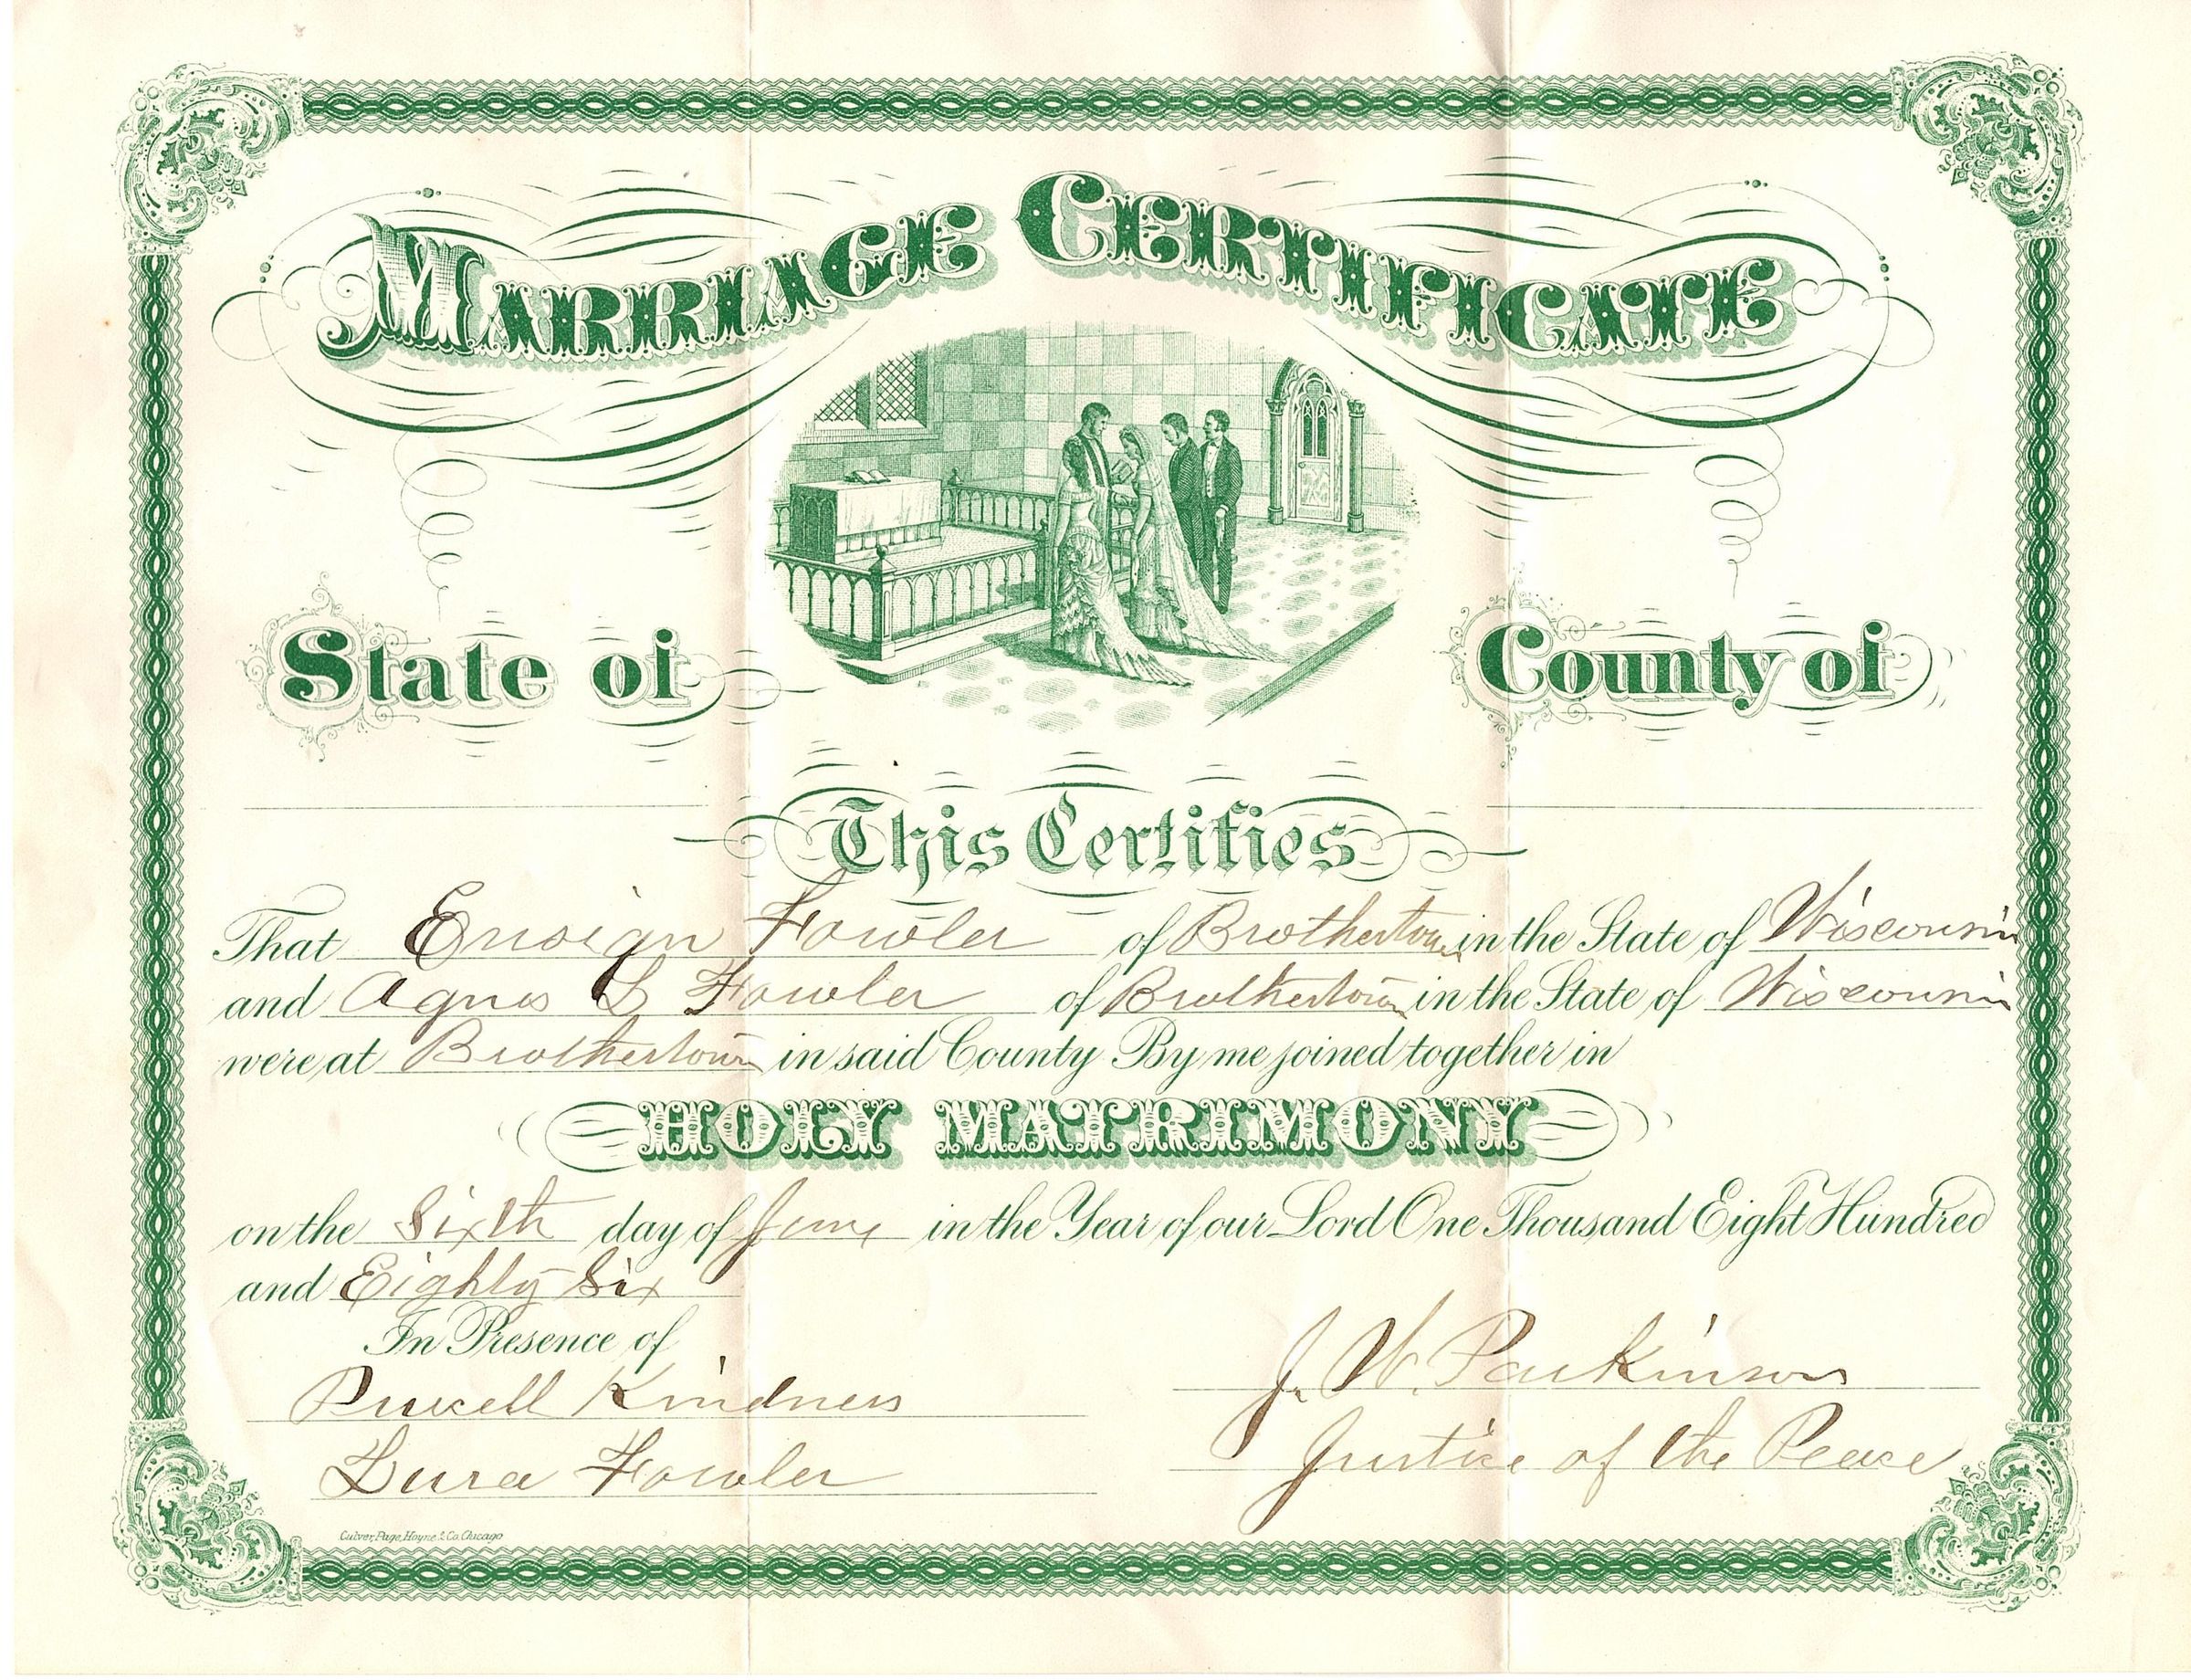 MARRIAGE CERTIFICATE
State of
County of
This Certifies
That Ensign Fowler of Brothertown in the State of Wisconsin
and Agnes L Fowler of Brothertown in the State of Wisconsin
were at Brothertown in said County By me joined together in
HOLY MATRIMONY
on the Sixth day of June in the Year of our Lord One Thousand Eight Hundred
and Eighty Six
In Presence of
Kindness
Lura Fowler
J. W. Parkinson
Justice of the Peace
Culver, Page, Hoyne & Co. Chicago